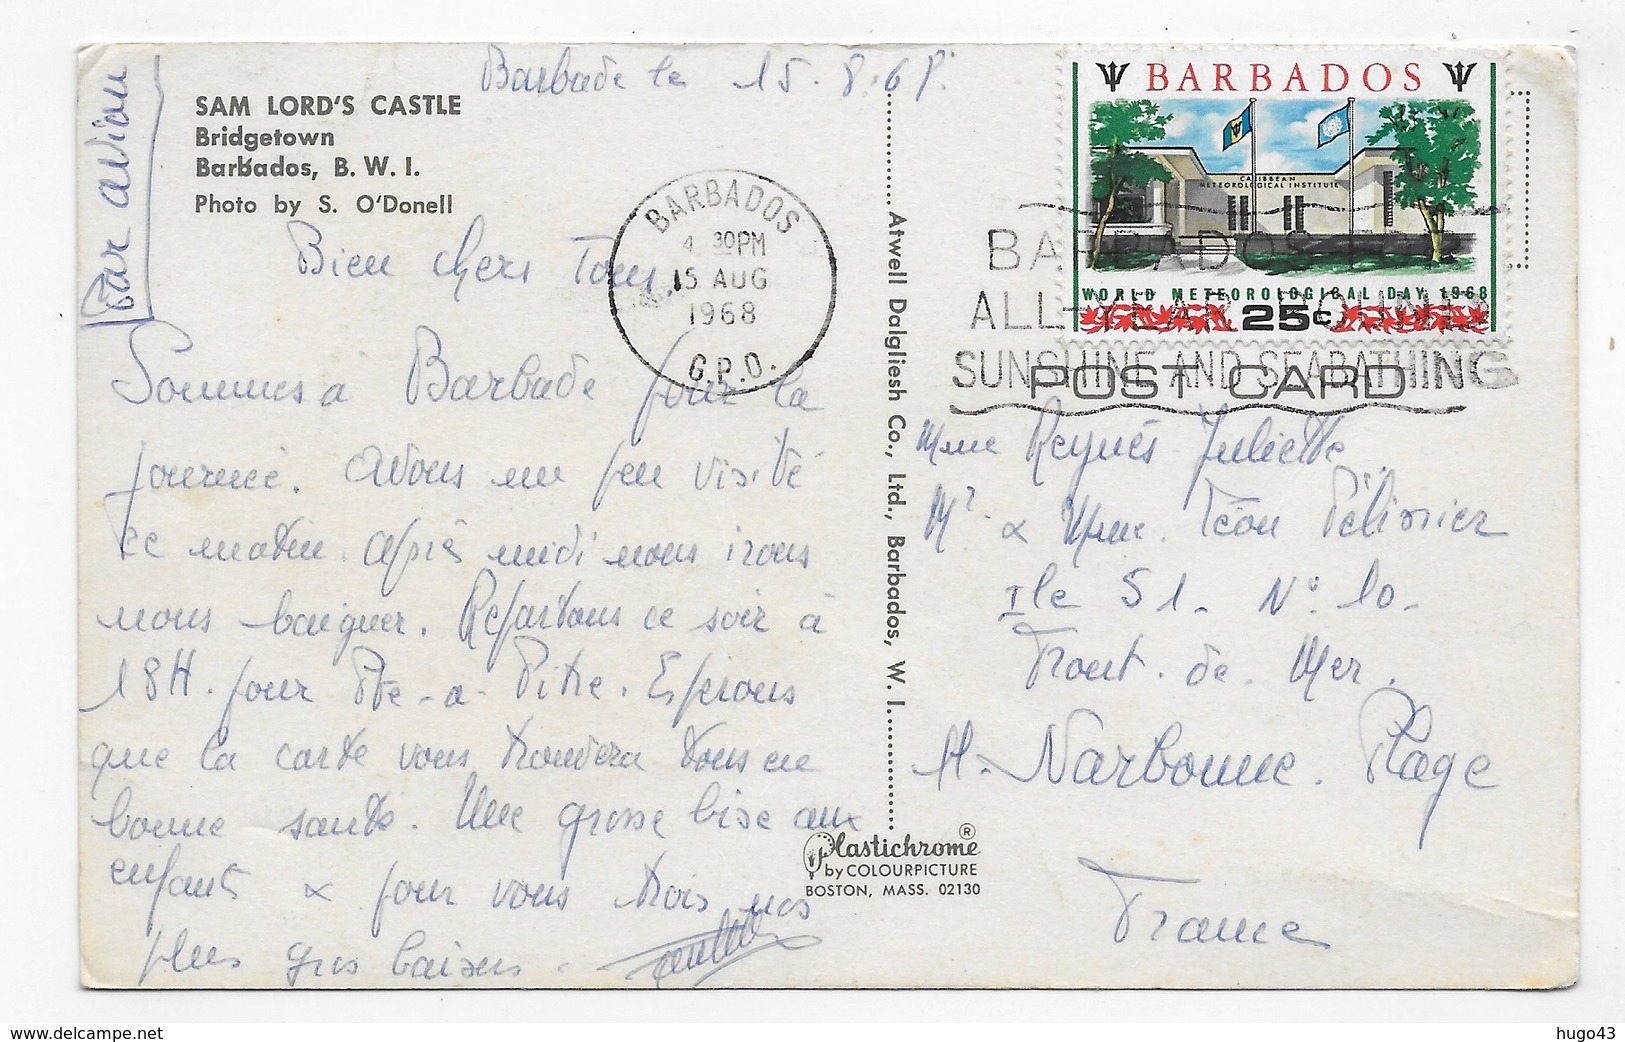 Par avion
SAM LORD'S CASTLE
Bridgetown
Barbados, B. W. I.
Photo by S. O'Donell
Barbade le 15.8.68.
Bien chers Tous,
Sommes à Barbade pour la
journée. Avons un peu visité
ce matin. Après midi nous irons
nous baigner. Repartons ce soir à
18H. pour Pte-à-Pitre. Espérons
que la carte vous trouvera tous en
bonne santé. Une grosse bise aux
enfants & pour vous trois nos
plus gros baisers.
BARBADOS
4 30PM
15 AUG
1968
G.P.O.
Atwell Dalgliesh Co., Ltd., Barbados, W. I.
Plastichrome ®
by COLOURPICTURE
BOSTON, MASS. 02130
BARBADOS
CARIBBEAN
METEOROLOGICAL INSTITUTE
WORLD METEOROLOGICAL DAY 1968
25c
BARBADOS FOR
ALL-YEAR-ROUND
SUNSHINE AND SEABATHING
POST CARD
Mme Reynés Juliette
Mr & Mme Léon Pélissier
Ile 51. N° 10.
Front. de. Mer.
11. Narbonne. Plage
France
hugo43